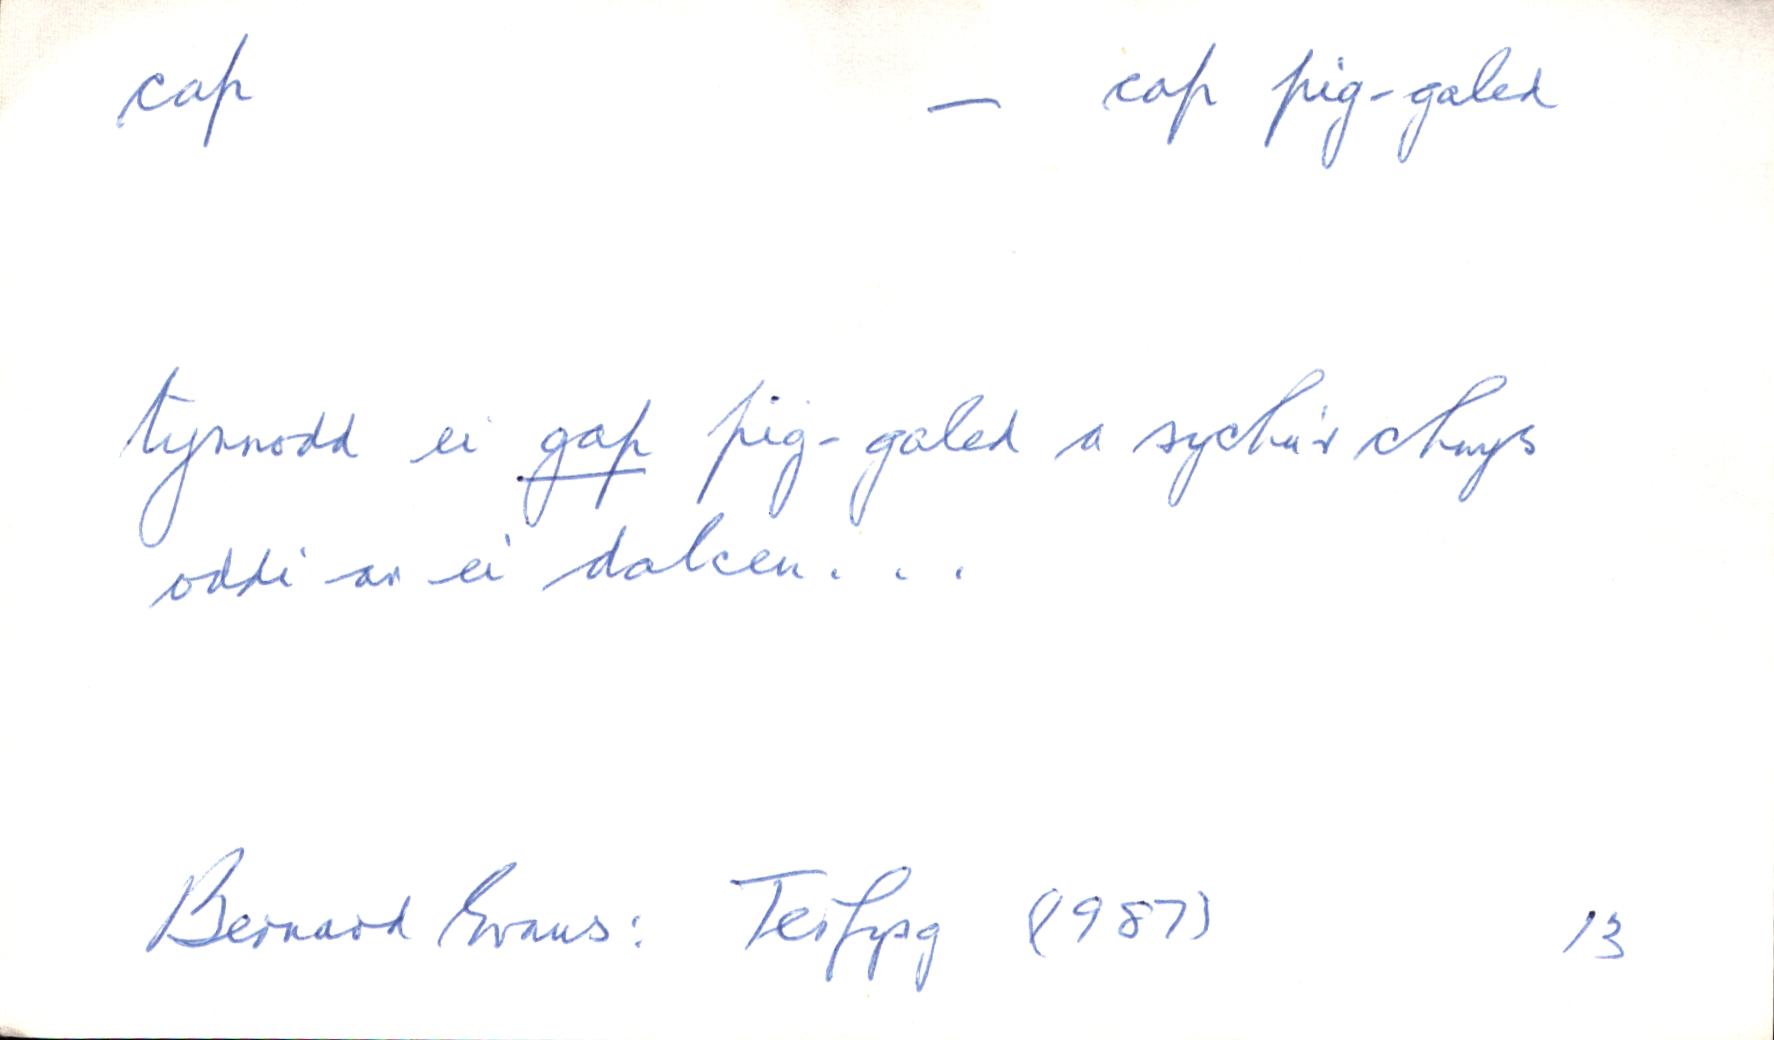 cap — cap pig-galed
tynnodd ei gap pig-galed a sychu'r chwys
oddi ar ei dalcen . . .
Bernard Evans: Terfysg (1987) 13